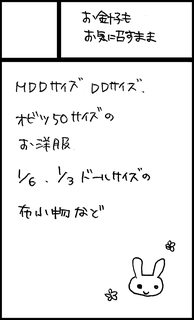 お金子も
お気に召すまま
MDDサイズ DDサイズ.
オビツ50サイズの
お洋服
1/6 . 1/3 ドールサイズの
布小物など